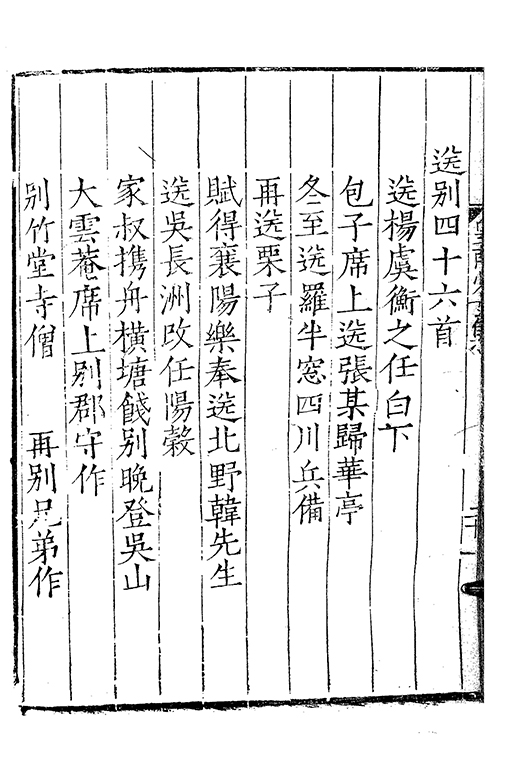 送别四十六首
送楊虞衡之任白下
包子席上送張某歸華亭
冬至送羅半窓四川兵備
再送栗子
賦得襄陽樂奉送北野韓先生
送吳長洲改任陽穀
家叔携舟橫塘餞别晚登吳山
大雲菴席上别郡守作
别竹堂寺僧 再别兄弟作